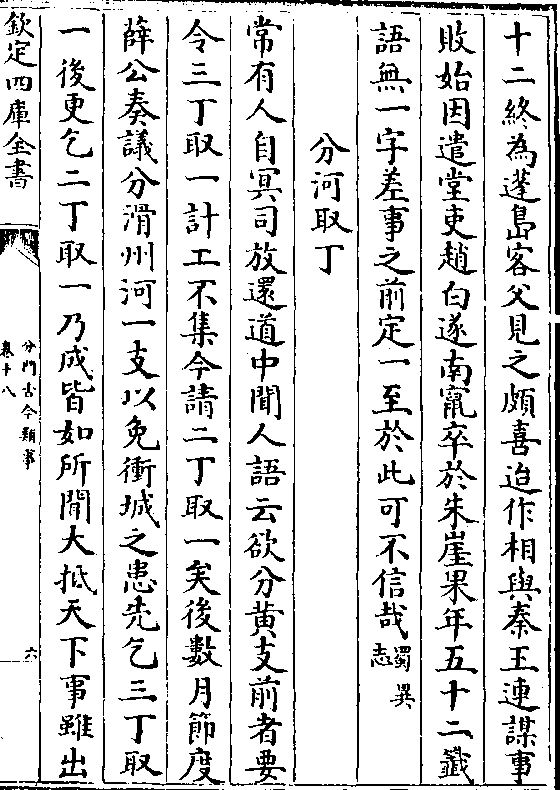 十二終為蓬島客父見之頗喜迨作相與秦王連謀事
敗始因遣堂吏趙白遂南竄卒於朱崖果年五十二籤
語無一字差事之前定一至於此可不信哉蜀異志
分河取丁
常有人自冥司放還道中聞人語云欲分黄支前者要
令三丁取一計工不集今請二丁取一矣後數月節度
薛公奏議分滑州河一支以免衝城之患先乞三丁取
一後更乞二丁取一乃成皆如所聞大抵天下事雖出
欽定四庫全書
分門古今類事
卷十八
六